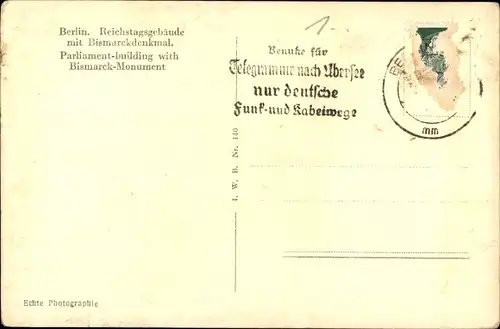 Berlin. Reichstagsgebäude
mit Bismarckdenkmal.
Parliament-building with
Bismarck-Monument
1.
Benutze für
Telegramme nach Übersee
nur deutsche
Funk- und Kabelwege
mm
I. W. B. Nr. 140
Echte Photographie